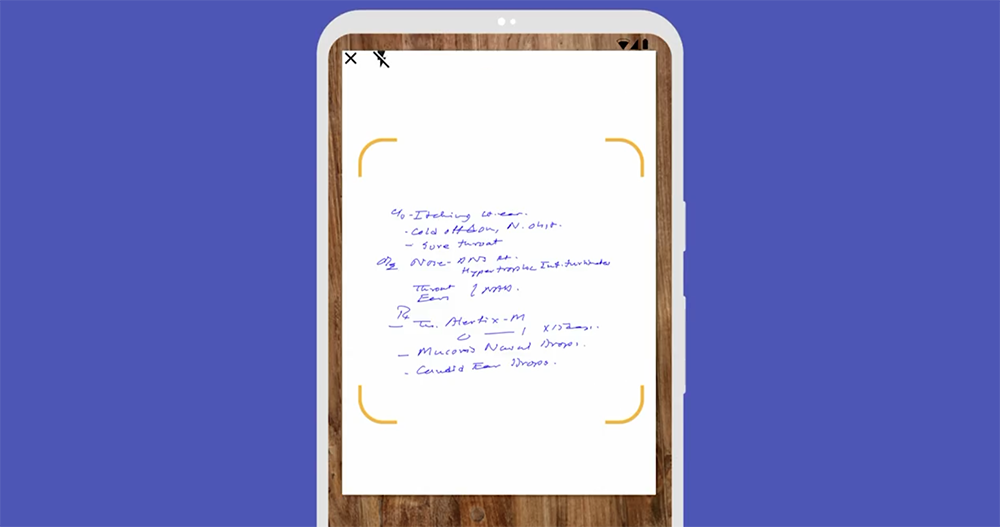 C/o - Itching in ear.
- Cold off & on, N. obst.
- Sore throat
O/E Nose - DNS Rt.
Hypertrophic Inf. turbinates
Throat
Ears } NAD.
Rx
- Tab. Alertix-M
0 — 1 x 15 days.
- Nasal Drops.
- Candid Ear Drops.